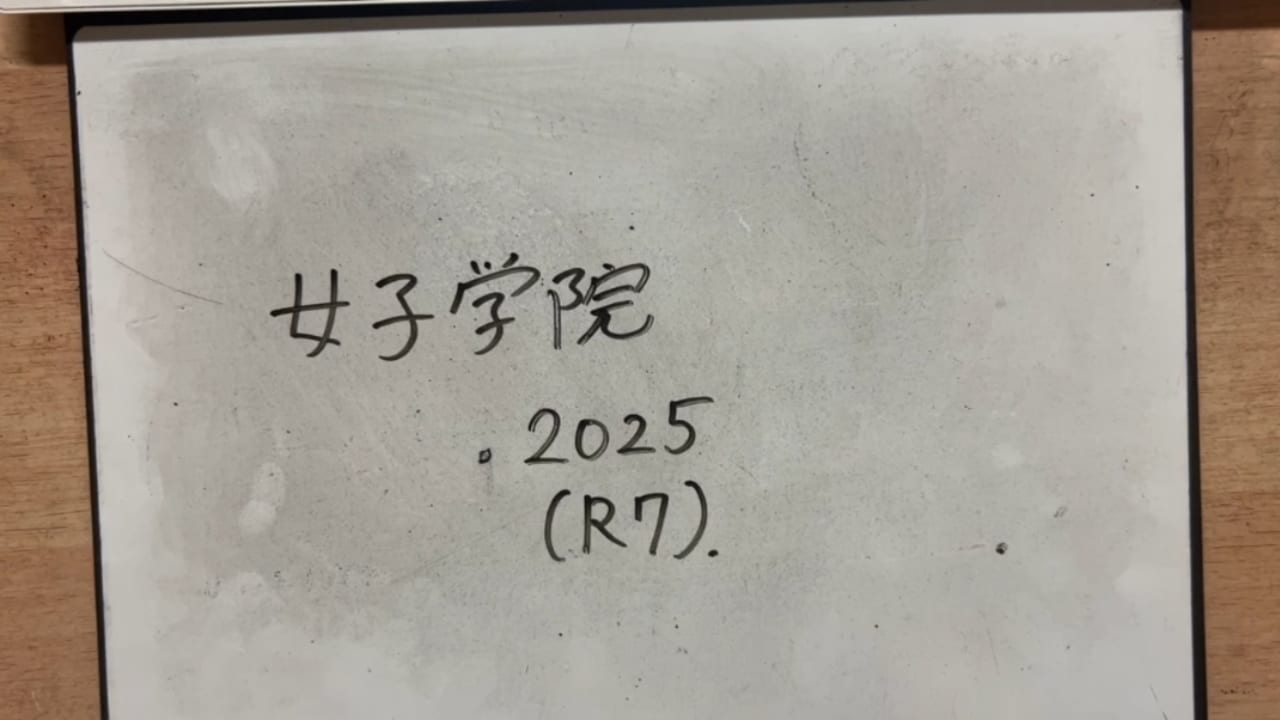 女子学院
. 2025
(R7).